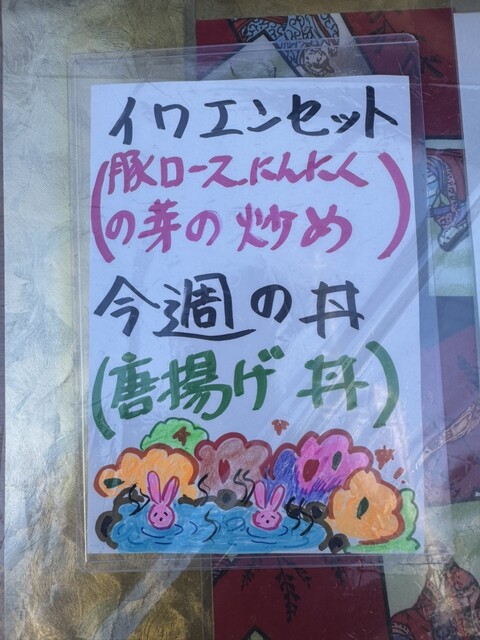 イワエンセット
(豚ロースにんにく
の芽の炒め)
今週の丼
(唐揚げ丼)